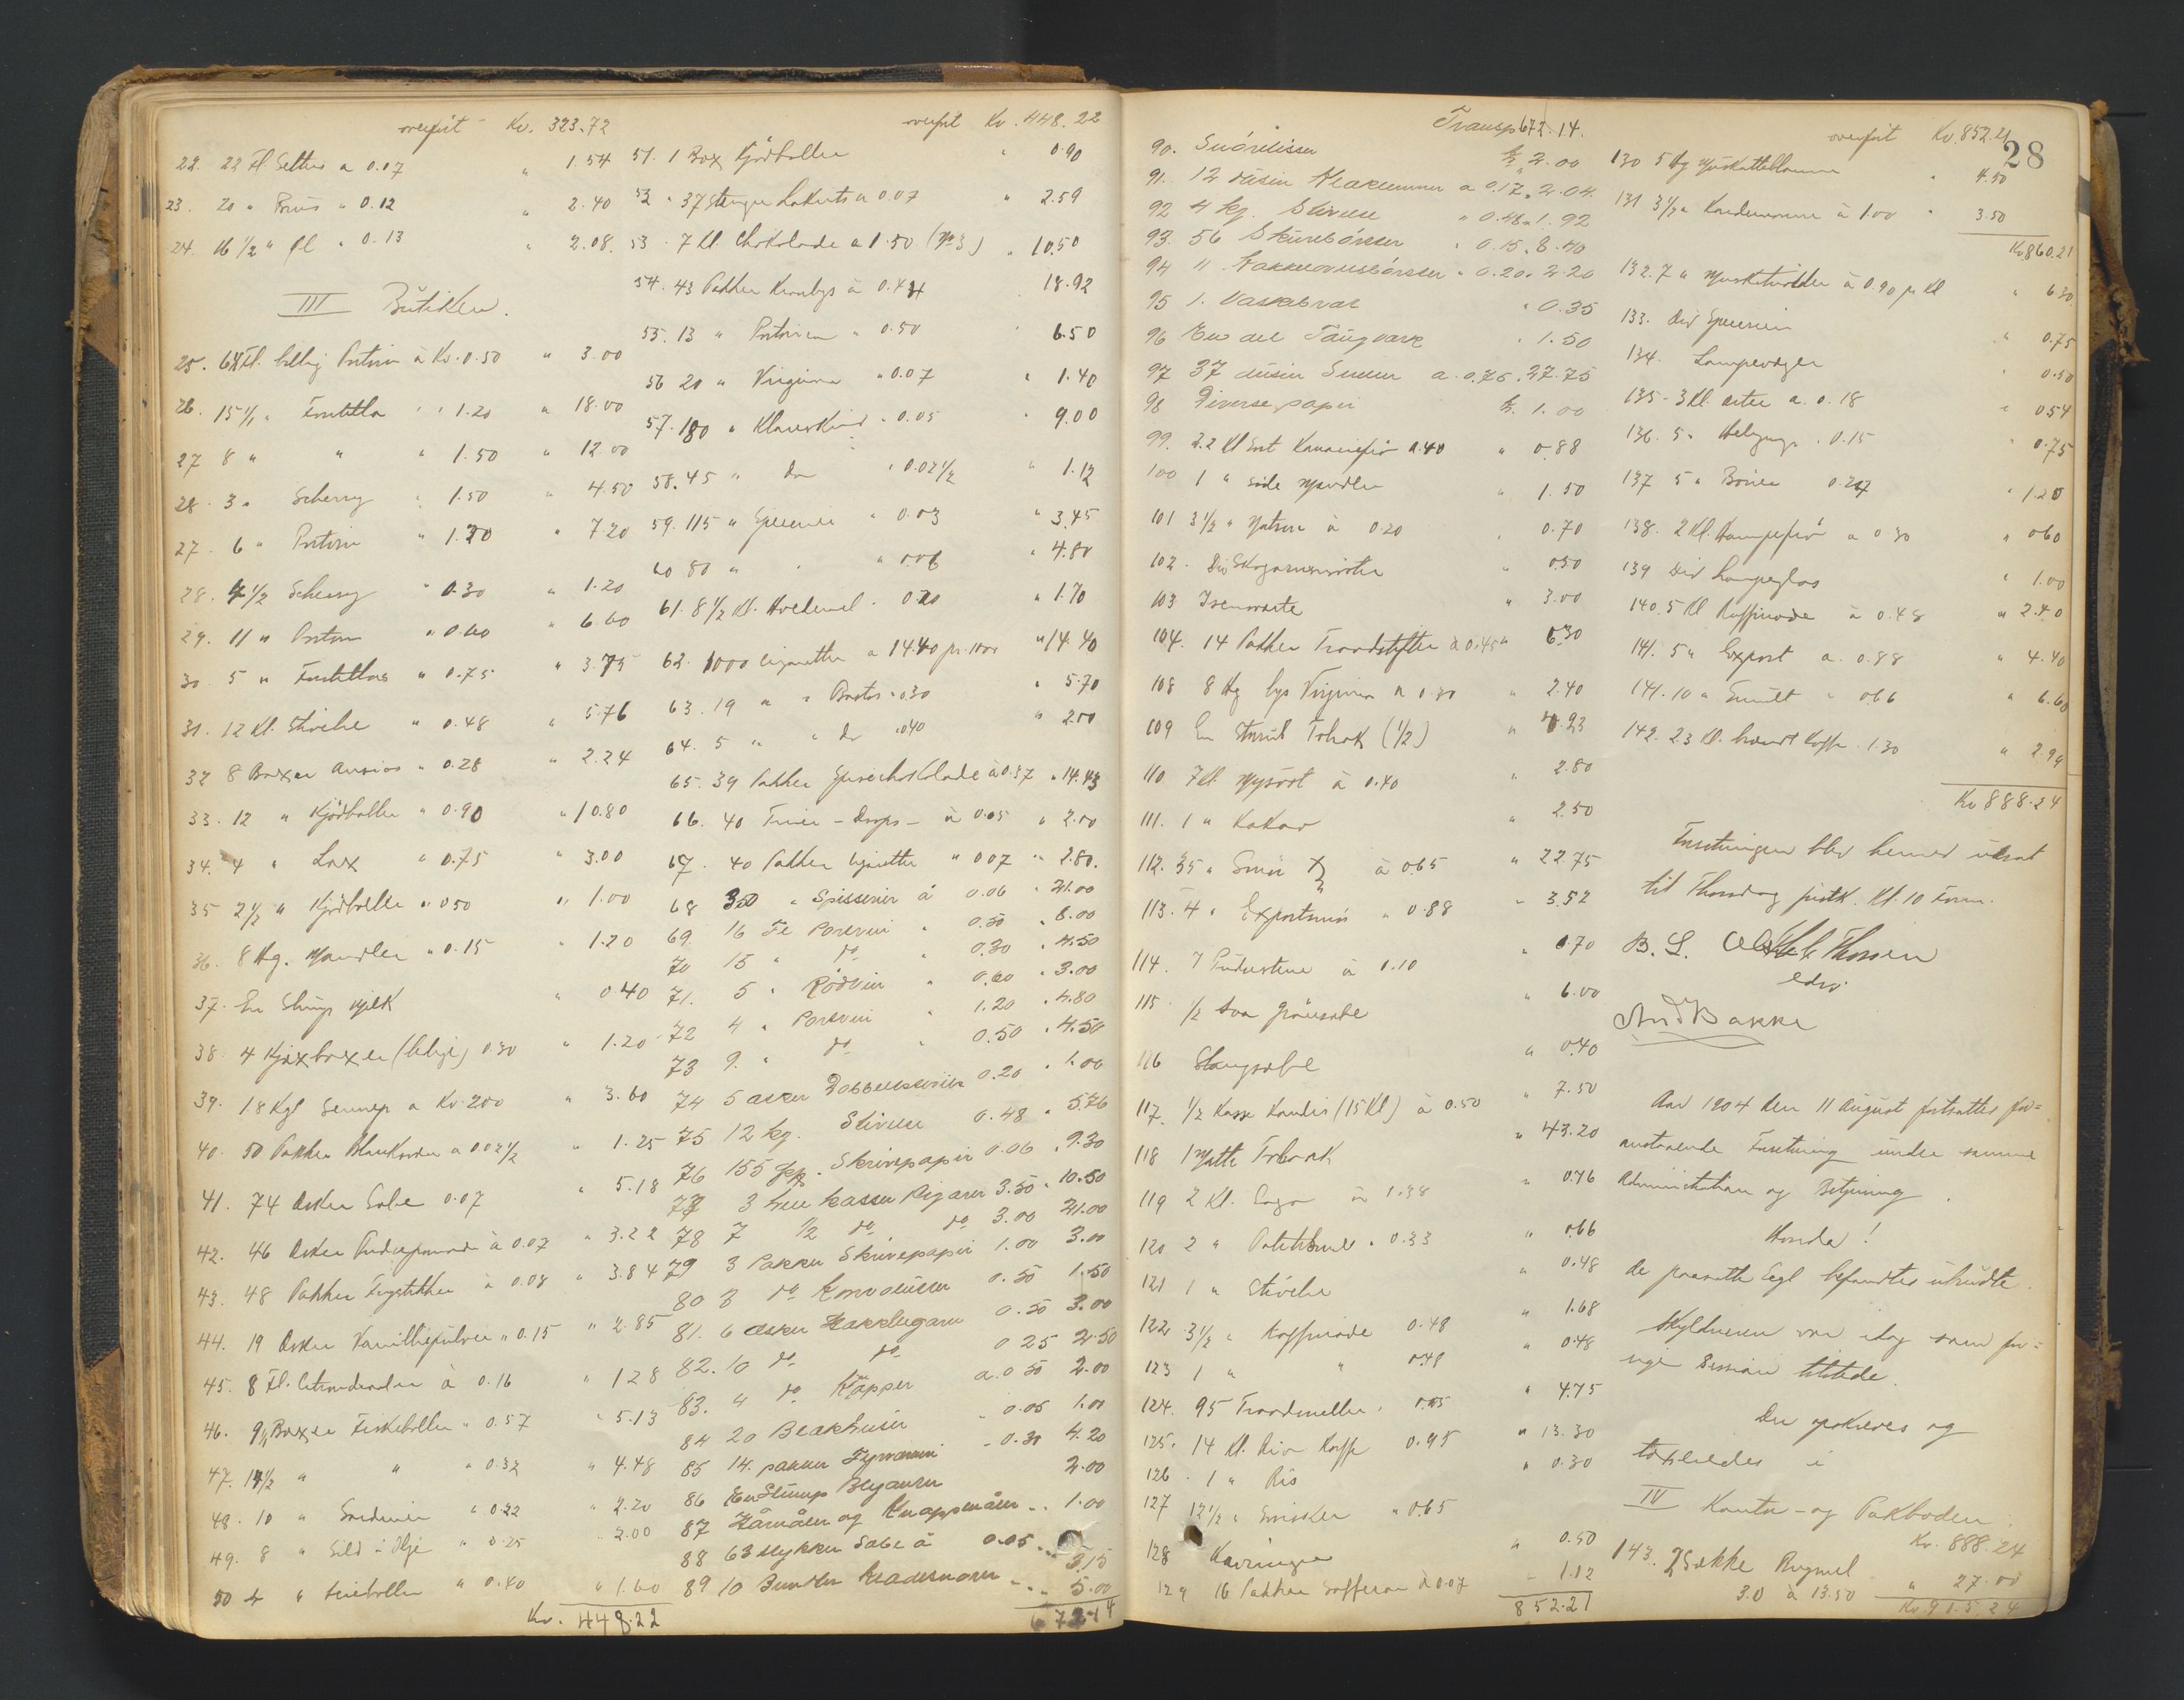 overført Kr. 323.72
22. 22 Fl Selters a 0.07 " 1.54
23. 20 " Brus " 0.12 " 2.40
24. 16 1/2 " Øl " 0.13 " 2.08
III Butiken.
25. 6 Fl. billig Portvin à Kr. 0.50 " 3.00
26. 15 1/1 " " 1.20 " 18.00
27 8 " " " 1.50 " 12.00
28. 3 " Scherry " 1.50 " 4.50
27. 6 " Portvin " 1.20 " 7.20
28. 4 1/2 Scherry " 0.30 " 1.20
29. 11 " Portvin " 0.60 " 6.60
30 5 " " 0.75 " 3.75
31. 12 Kl. Stivelse " 0.48 " 5.76
32 8 Boxer Ansios " 0.28 " 2.24
33. 12 " Kjödboller " 0.90 " 10.80
34. 4 " Lax " 0.75 " 3.00
35 2 1/2 " Kjödboller " 0.50 " 1.00
36. 8 Hg. Mandler " 0.15 " 1.20
37. En Slump Melk " 0.40
38. 4 Kjæxboxer (belige) 0.30 " 1.20
39. 18 Kgl Sennep a Kr. 2.00 " 3.60
40. 50 Pakker Blanksverte a 0.02 1/2 " 1.25
41. 74 Æsker Sæbe 0.07 " 5.18
42. 46 Æsker Pudsepomade à 0.07 " 3.22
43. 48 Pakker Fyrstikker à 0.08 " 3.84
44. 19 Æsker Vanillepulver " 0.15 " 2.85
45. 8 Fl. à 0.16 " 1.28
46. 9 1/1 Boxer Fiskeboller " 0.57 " 5.13
47. 14 1/2 " " " 0.32 " 4.48
48. 10 " Sardiner " 0.22 " 2.20
49. 8 " Sild i Olje " 0.25 " 2.00
50 4 " " 0.40 " 1.60
Kr. 448.22
overført Kr. 448.22
51. 1 Box Kjödboller " 0.90
52 " 37 Stenger Lakerts a 0.07 " 2.59
53. 7 Kl. Chokolade a 1.50 (No 3) " 10.50
54. 43 Pakker à 0.44 18.92
55. 13 " " 0.50 6.50
56 20 " Virginia " 0.07 " 1.40
57. 180 " " 0.05 " 9.00
58. 45 " Do " 0.02 1/2 " 1.12
59. 115 " Specerier " 0.03 " 3.45
60 80 " " " 0.06 " 4.80
61. 8 1/2 Kl. Hvedemel " 0.20 " 1.70
62. 1000 Cigaretter a 14.40 pr. 1000 " 14.40
63. 19 " " 0.30 " 5.70
64. 5 " " Do " 0.40 " 2.00
65. 39 Pakker Spisechokolade à 0.37 " 14.43
66. 40 - Drops - à 0.05 " 2.00
67. 40 Pakker Cigaretter " 0.07 " 2.80.
68 350 " Spisserier à 0.06 " 21.00
69. 16 Fl Portvin " 0.50 " 8.00
70 15 " Do " 0.30 " 4.50
71. 5 " Rödvin " 0.60 " 3.00
72 4 " Portvin " 1.20 " 4.80
73 9. " Do " 0.50 " 4.50
74 5 æsker 0.20 " 1.00
75 12 kg. Stivelse 0.48 " 5.76
76 155 Skrivepapir 0.06 " 9.30
77 3 hele kasser Sigarer 3.50 " 10.50
78 7 1/2 Do Do 3.00 21.00
79 3 Pakker Skrivepapir 1.00 3.00
80 3 Do Konvolutter 0.50 1.50
81. 6 æsker Heklegarn 0.50 3.00
82. 10 Do Do 0.25 2.50
83. 4 Do Knapper a. 0.50 2.00
84 20 Blækhuser " 0.05 1.00
85 14. pakker - 0.30 4.20
86 En Slump Blyanter 2.00
87 Hårnåler og Knappenåler " " 1.00
88 63 stykker Sæbe à 0.05 " 3.15
89 10 Bundter " " 5.00
672.14
Transp 672.14.
90. Snörelisser Kr. 2.00
91. 12 dusin a 0.17 " 2.04
92 4 kg. Stivelse " 0.48 " 1.92
93. 56 Skurebörster " 0.15 " 8.40
94 11 " 0.20 " 2.20
95 1. " 0.35
96 En del Taugværk " 1.50
97 37 dusin a. 0.75 " 27.75
98 Diverse papir Kr. 1.00
99. 2.2 Kl Kanariefrö 0.40 " 0.88
100 1 " söde Mandler " 1.50
101 3 1/2 " Natron à 0.20 " 0.70
102. Div " 0.50
103 " 3.00
104. 14 Pakker Traadstifter à 0.45 " 6.30
108 8 Hg lys Virginia a 0.30 " 2.40
109 En Strimle Tobak (1/2) " 0.23
110 7 Kl. Mysost à 0.40 " 2.80
111. 1 " Kakao " 2.50
112. 35 " Smör à 0.65 " 22.75
113. 4 " Exportsmör " 0.88 " 3.52
114. 7 Pudsestene à 0.10 " 0.70
115 1/2 Grönsæbe " 6.00
116 Stangsæbe " 0.40
117. 1/2 Kasse Kandis (15 Kl) à 0.50 " 7.50
118 1 Matte Tobak " 43.20
119 2 Kl. Sago à 1.38 " 0.76
120 2 " Potetmel " 0.33 " 0.66
121 1 " Stivelse " 0.48
122 3 1/2 " Kaffinade 0.48 " 1.68
123 1 " " 0.48 " 0.48
124. 95 Traadsneller " 0.05 " 4.75
125. 14 Kl. Rio Kaffe 0.95 " 13.30
126. 1 " Ris " 0.30
127 12 1/2 " " 0.65
128 Kavringer " 0.50
129 16 Pakker Safferan à 0.07 " 1.12
852.21
overført Kr. 852.21
28
130 5 Hg Muskatblomme " 4.50
131 3 1/2 " Kardemomme à 1.00 " 3.50
Kr 860.21
132. 7 " à 0.90 pr Kl " 6.30
133. Div Specerier " 0.75
134. Lampevæger " 0.50
135 - 3 Kl. Erter a. 0.18 " 0.54
136. 5 " Helgryn " 0.15 " 0.75
137 5 " Bönner 0.24 " 1.20
138. 2 Kl. Hampefrö a 0.30 " 0.60
139 Div Lampeglas " 1.00
140. 5 Kl Kaffinade à 0.48 " 2.40
141. 5 " Export a. 0.88 " 4.40
141. 10 " Smult " 0.66 " 6.60
142. 2.3 Kl. brændt Kaffe " 1.30 " 2.99
Kr 888.24
Forretningen blev hermed udsat
til Thorsdag førstk. Kl. 10 Form.
B. L. Thorsen
edsv
And Bakke
Aar 1904 den 11 August fortsattes for=
anstaaende Forretning under samme
Administration og Betjening.
Herunder!
De paasatte Segl befandtes ubrudte.
Skyldneren var idag som for=
rige Session tilstede.
Der opskreves og
taxeredes i
IV Kontor- og Pakboden.
Kr. 888.24
143. 2 Sække Rugmel
30 à 13.50 " 27.00
Kr 915.24